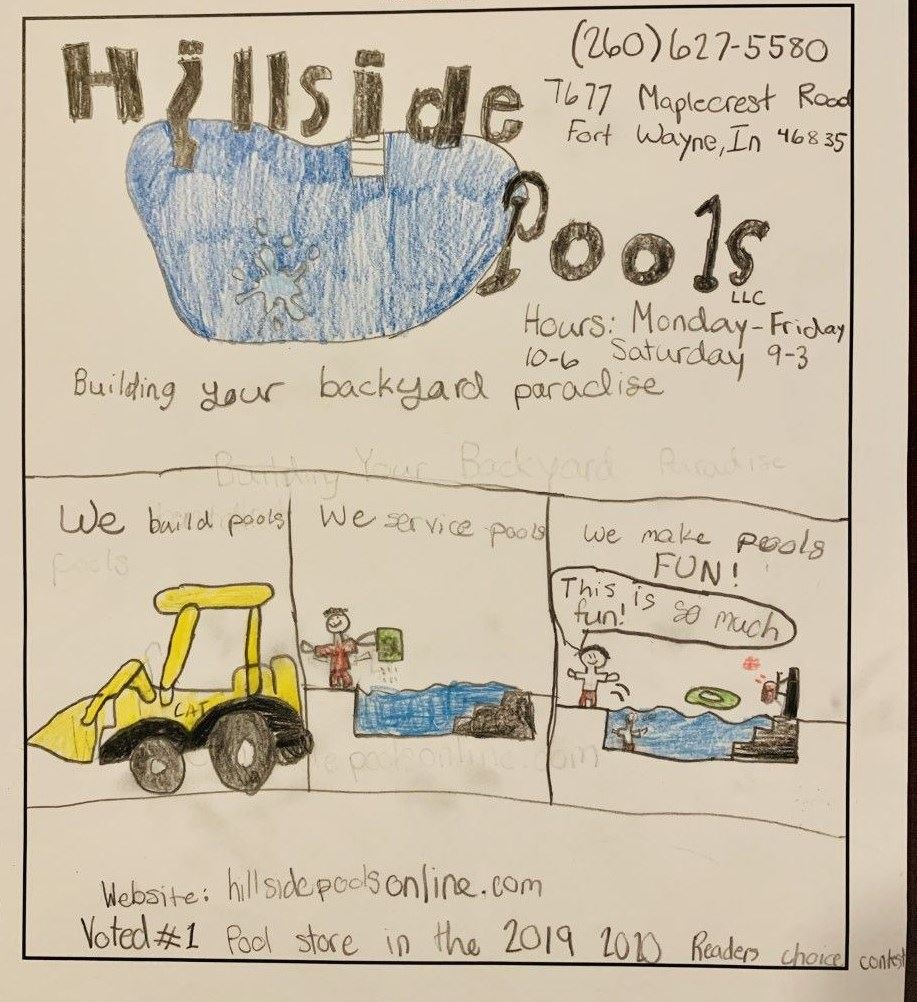 Hillside
Pools
LLC
(260) 627-5580
7677 Maplecrest Road
Fort Wayne, In 46835
Hours: Monday-Friday
10-6 Saturday 9-3
Building your backyard paradise
Building Your Backyard Paradise
We build pools
pools
We service pools
We make pools
FUN!
This is so much
fun!
CAT
poolsonline.com
Website: hillsidepoolsonline.com
Voted #1 Pool store in the 2019 2020 Readers choice contest